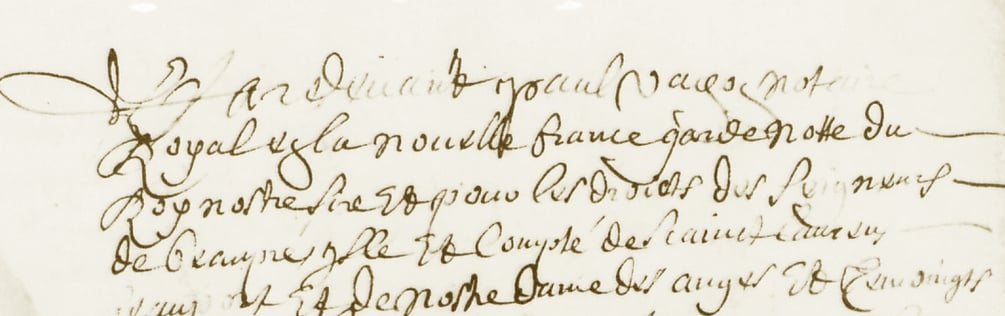 Par Devant paul vachon notaire
Royal en la nouvelle france garde notte du
Roy nostre sire Et pour les droicts des seigneurs
de beaupré ysle Et Compté de sainct Laurens
Et de nostre dame des anges Et tesmoingts